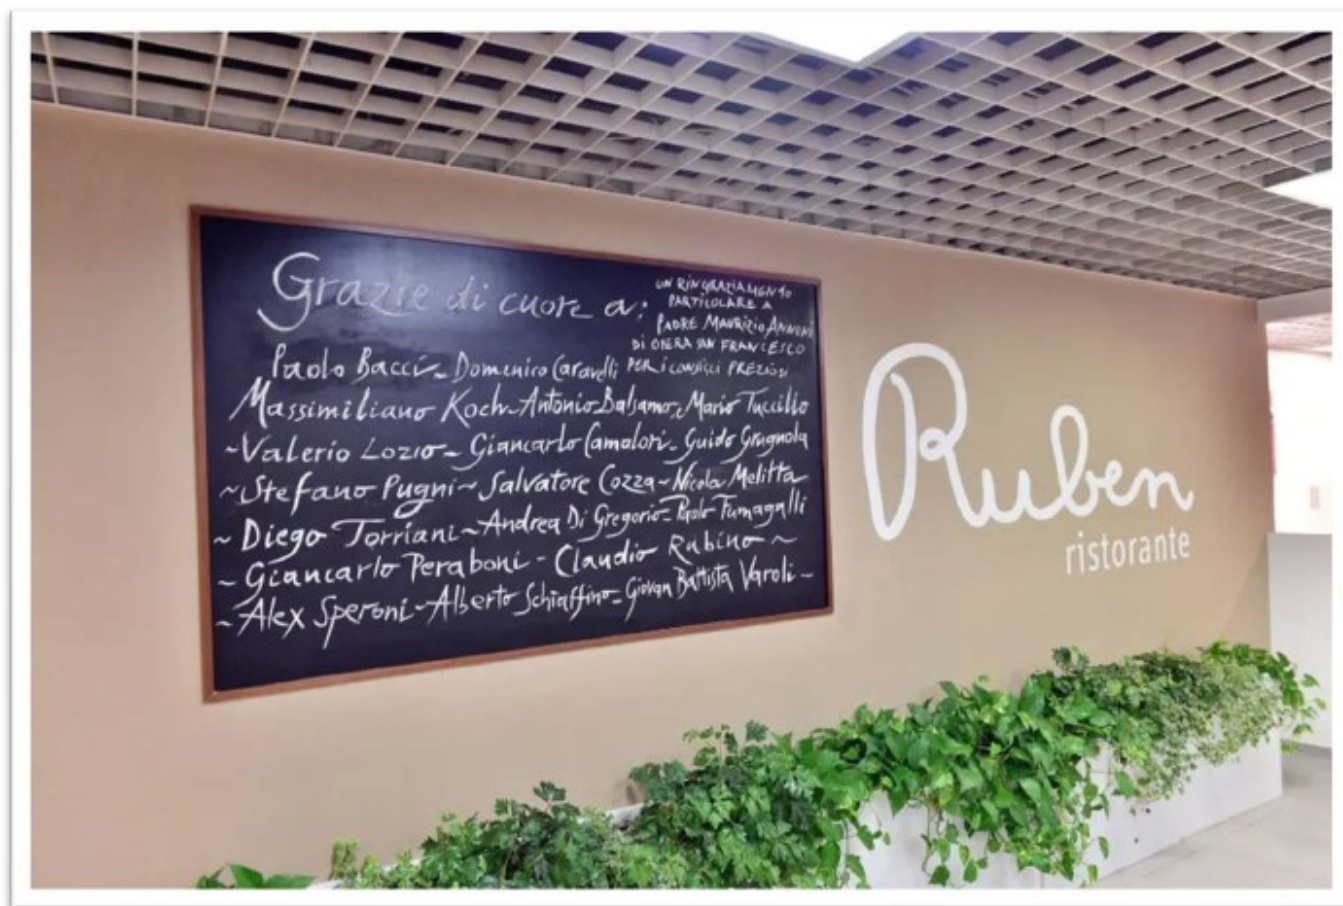 Grazie di cuore a:
UN RINGRAZIAMENTO
PARTICOLARE A
PADRE MAURIZIO ANNONI
DI OPERA SAN FRANCESCO
PER I CONSIGLI PREZIOSI
Paolo Bacci - Domenico Caravelli
Massimiliano Koch - Antonio Balsamo - Mario Tuccillo
~ Valerio Lozio - Giancarlo Camolori - Guido Grugnola
~ Stefano Pugni ~ Salvatore Cozza ~ Nicola Melitta
~ Diego Torriani ~ Andrea Di Gregorio - Paolo Fumagalli
~ Giancarlo Peraboni - Claudio Rubino ~
~ Alex Speroni - Alberto Schiaffino - Giovan Battista Varoli -
Ruben
ristorante